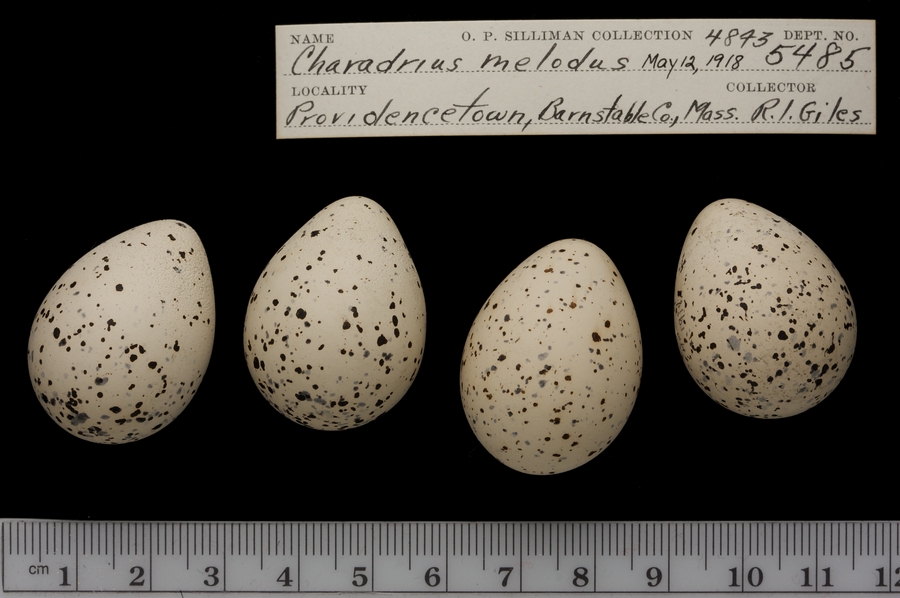 NAME O. P. SILLIMAN COLLECTION 4843 DEPT. NO.
Charadrius melodus May 12, 1918 5485
LOCALITY COLLECTOR
Providencetown, Barnstable Co., Mass. R.I. Giles
cm 1 2 3 4 5 6 7 8 9 10 11 12